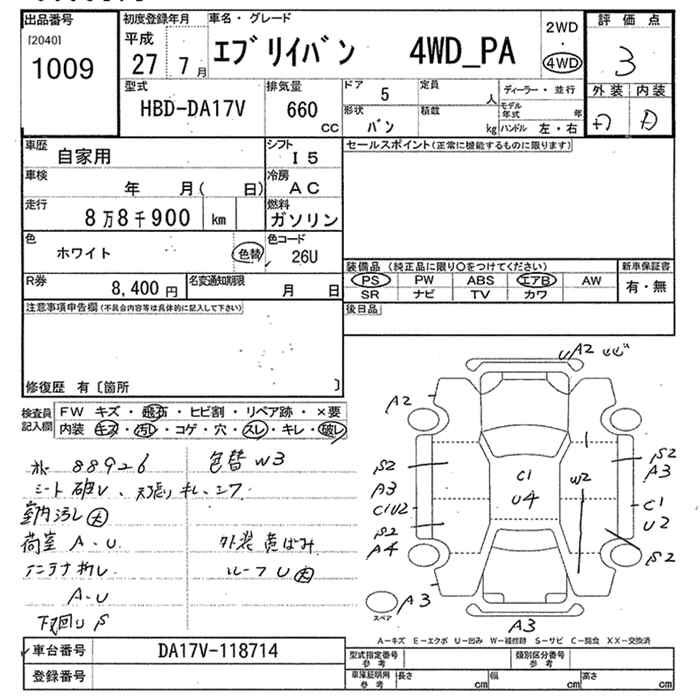 出品番号
[2040]
1009
初度登録年月
平成
27 7月
車名・グレード
エブリイバン 4WD_PA
2WD
・
4WD
評価点
3
外装 内装
型式
HBD-DA17V
排気量
660
cc
ドア 5
定員 人
形状 バン
積載 kg
ディーラー・並行
モデル年式 年
ハンドル 左・右
車歴
自家用
シフト
I5
セールスポイント(正常に機能するものに限ります)
車検
年 月( 日)
冷房
AC
走行
8万8千900 km
燃料
ガソリン
色
ホワイト
色替
色コード
26U
R券
8,400 円
名変通知期限
月 日
装備品 (純正品に限り〇をつけてください)
PS PW ABS エアB AW
SR ナビ TV カワ
新車保証書
有・無
注意事項申告欄(不具合内容等は具体的に記入して下さい)
後日品
修復歴 有〔箇所 〕
検査員記入欄
FW キズ・飛石・ヒビ割・リペア跡・×要
内装・キズ・汚レ・コゲ・穴・スレ・キレ・破レ
88926
色替 W3
シート破レ、天張りキレ、エフ
室内汚レ 大
荷室 A・U
外装黄ばみ
アンテナ折レ
ルーフ U 大
A・U
下廻り S
A2
A2
S2
A3
C1U2
S2
A4
C1
U4
W2
S2
A3
C1
U2
S2
スペア
A3
A3
A-キズ E-エクボ U-凹み W-補修跡 S-サビ C-腐食 XX-交換済
車台番号
DA17V-118714
登録番号
型式指定番号
参考
類別区分番号
参考
車庫証明用
参考
長さ cm
幅 cm
高さ cm